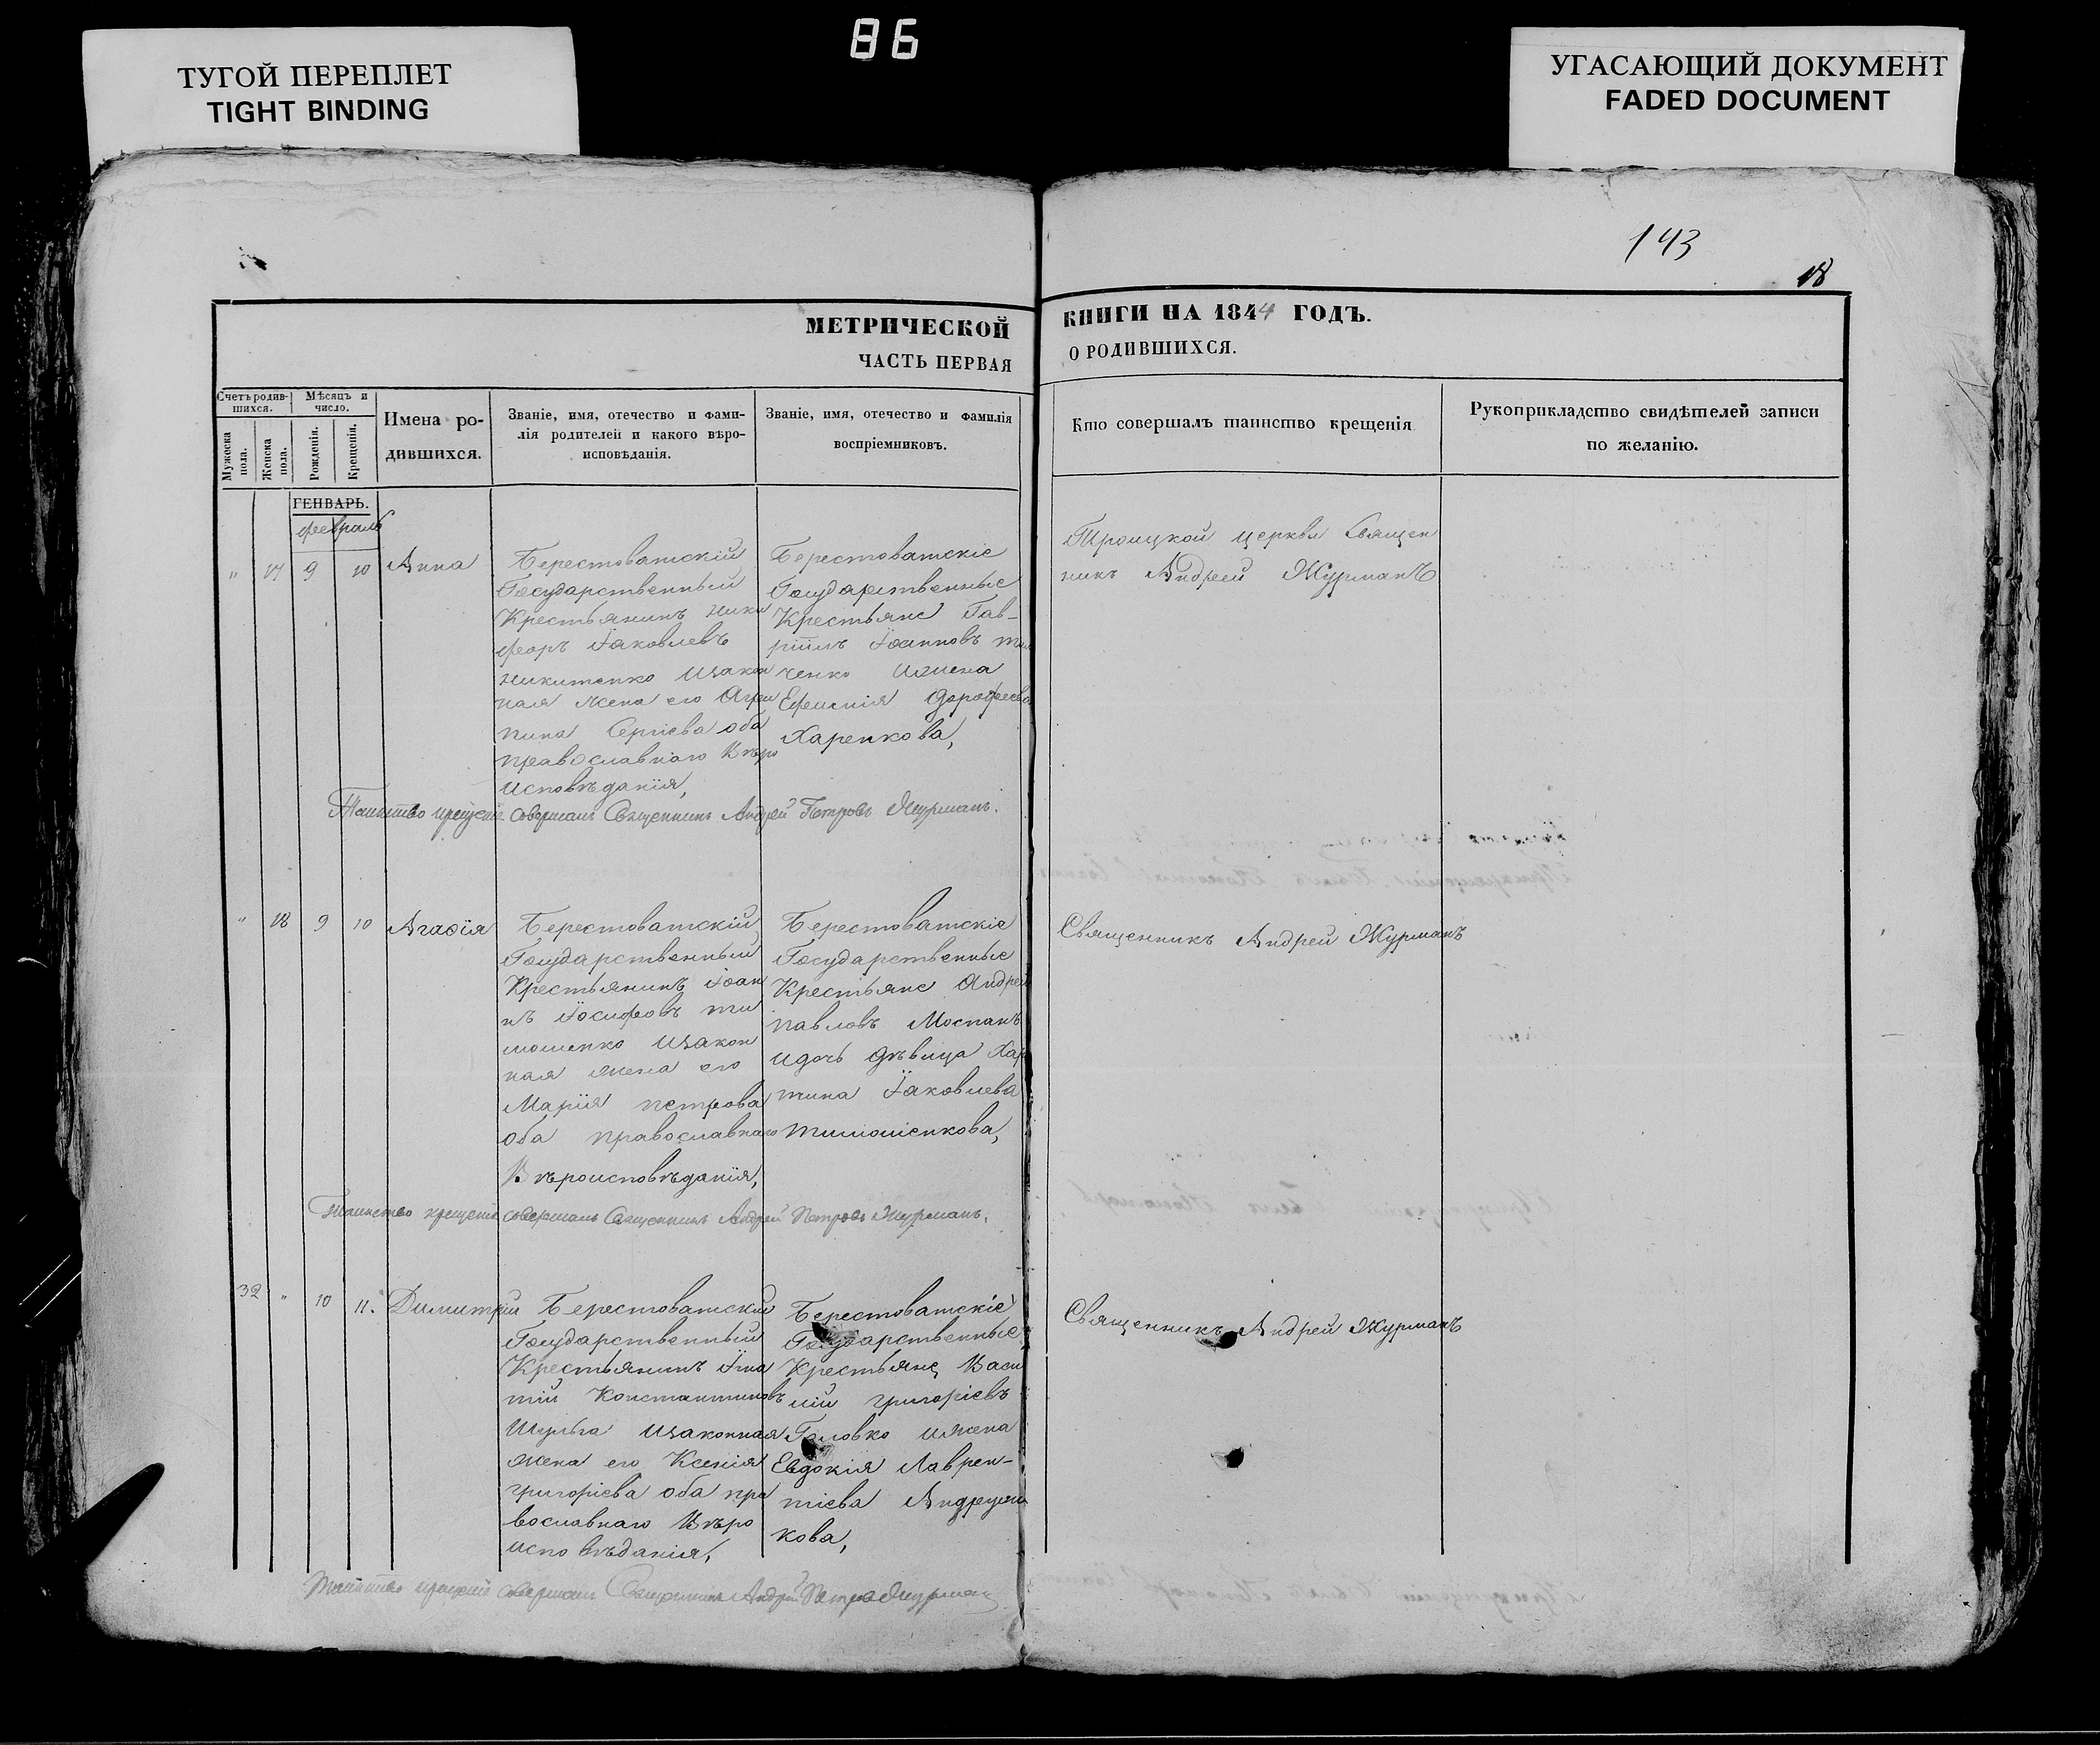 86
ТУГОЙ ПЕРЕПЛЕТ
TIGHT BINDING
УГАСАЮЩИЙ ДОКУМЕНТ
FADED DOCUMENT
143
18
МЕТРИЧЕСКОЙ
ЧАСТЬ ПЕРВАЯ
КНИГИ НА 1844 ГОДЪ.
О РОДИВШИХСЯ.
Счетъ родив-
шихся.
Мѣсяцъ и
число.
Мужеска
пола.
Женска
пола.
Рожденія.
Крещенія.
Имена ро-
дившихся.
Званіе, имя, отечество и фами-
лія родителей и какого вѣро-
исповѣданія.
Званіе, имя, отечество и фамилія
воспріемниковъ.
Кто совершалъ таинство крещенія
Рукоприкладство свидѣтелей записи
по желанію.
ГЕНВАРЬ.
февраль
" 17 9 10 Анна
Берестоватскій
Государственный
Крестьянинъ Ники
форъ Іаковлевъ
Никитенко изакон
ная жена его Агри
пина Сергіева оба
православнаго Вѣро
исповѣданія,
Берестоватскіе
Государственные
Крестьяне Гав-
ріилъ Іоанновъ
ченко ижена
Ефимія Дорофеева
Харенкова,
Троицкой церкви Священ
никъ Андрей Журманъ
Таинство крещенія совершалъ Священникъ Андрей Петровъ Журманъ.
" 18 9 10 Агафія
Берестоватскій
Государственный
Крестьянинъ Іоан
нъ Іосифовъ Ти
мошенко изакон
ная жена его
Марія Петрова
оба православнаго
Вѣроисповѣданія,
Берестоватскіе
Государственные
Крестьяне Андрей
Павловъ Моспанъ
идочь дѣвица Хар
тина Іаковлева
Тимошенкова,
Священникъ Андрей Журманъ
Таинство крещенія совершалъ Священникъ Андрей Петровъ Журманъ.
32 " 10 11. Димитрій
Берестоватскій
Государственный
Крестьянинъ Игна
тій Константиновъ
Шульга изаконная
жена его Ксенія
Григоріева оба пра
вославнаго Вѣро
исповѣданія,
Берестоватскіе
Государственные
Крестьяне Васи
лій Григоріевъ
Головко ижена
Евдокія Лаврен-
тіева
кова,
Священникъ Андрей Журманъ
Таинство крещенія совершалъ Священникъ Андрей Петровъ Журманъ